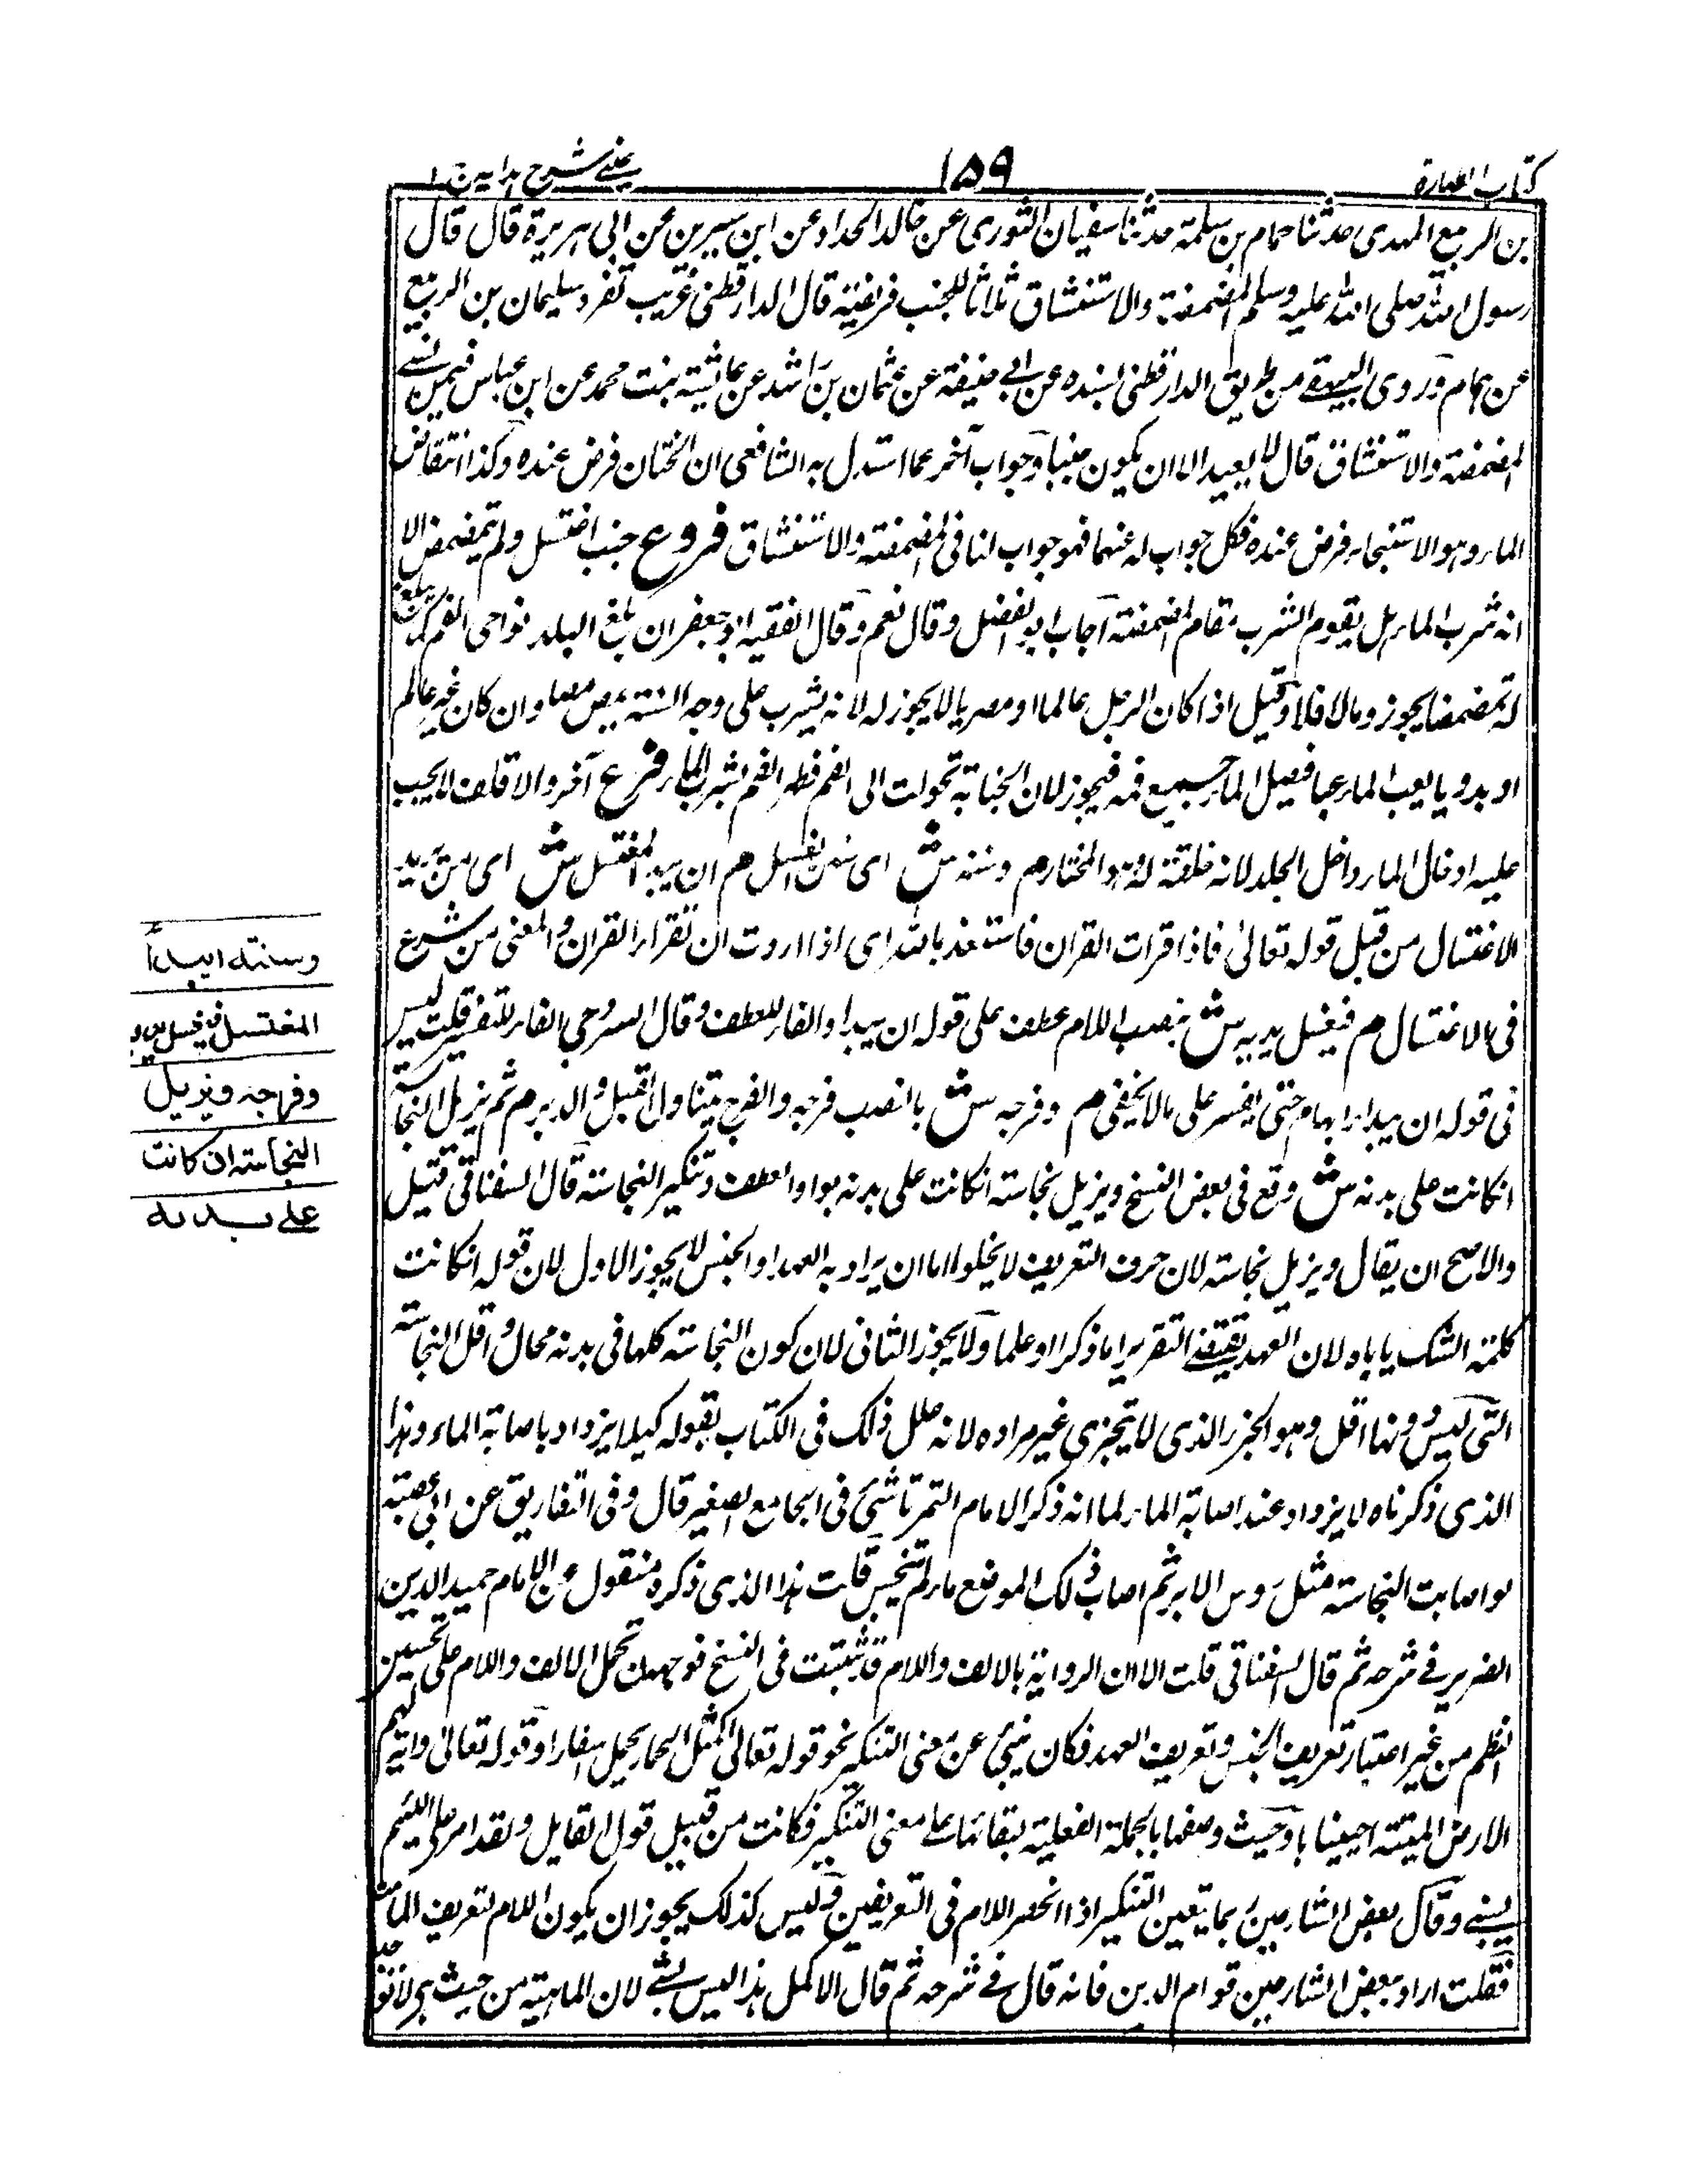 كتاب الطهارة
١٥٩
عينى شرح هداية ج ١
بن الربيع المهدى حدثنا همام بن سلمة حدثنا سفيان الثورى عن خالد الحداد عن ابن سيرين عن ابى هريرة قال قال
رسول الله صلى الله عليه وسلم المضمضة والاستنشاق ثلاثا للجنب فريضة قال الدارقطنى غريب تفرد سليمان بن الربيع
عن همام وروى البيهقى من طريق الدارقطنى بسنده عن ابى حنيفة عن عثمان بن راشد عن عائشة بنت محمد عن ابن عباس فيمن نسى
المضمضة والاستنشاق قال لا يعيد الا ان يكون جنبا وجواب آخر عما استدل به الشافعى ان الختان فرض عنده وكذا انتقاض
الماء وهو الاستنجاء فرض عنده فكل جواب له عنهما فهو جواب لنا فى المضمضة والاستنشاق فروع جنب اغتسل ولم يتمضمض الا
انه شرب الماء هل يقوم الشرب مقام المضمضة اجاب ابو الفضل وقال نعم وقال الفقيه ابو جعفر ان بلغ البلد نواحى الفم
له تمضمضا يجوز وما لا فلا وقيل اذا كان الرجل عالما او مصريا لا يجوز له لانه يشرب على وجه السنة يمص مصا وان كان غير عالم
او بدويا يعب الماء عبا فيصل الماء جميع فمه فيجوز لان الجنابة تحولت الى الفم فطهر الفم بشرب الماء فرع آخر والاقلف لا يجب
عليه ادخال الماء داخل الجلد لانه خلقة له هو المختار م وسننه ش اى سنن الغسل م ان يبدأ المغتسل ش اى من يريد
الاغتسال من قبيل قوله تعالى فاذا قرأت القرآن فاستعذ بالله اى اذا اردت ان تقرأ القرآن والمعنى من شرع
فى الاغتسال م فيغسل يديه ش بنصب اللام عطف على قوله ان يبدأ والفاء للعطف وقال السروجى الفاء للتفسير قلت ليس
فى قوله ان يبدأ ابهام حتى يفسر على ما لا يخفى م وفرجه ش بالنصب فرجه والفرج يتناول القبل والدبر م ثم يزيل النجاسة
انكانت على بدنه ش وقع فى بعض النسخ ويزيل نجاسة انكانت على بدنه بواو العطف وتنكير النجاسة قال السغناقى قيل
والاصح ان يقال ويزيل نجاسة لان حرف التعريف لا يخلو اما ان يراد به العهد او الجنس لا يجوز الاول لان قوله انكانت
كلمة الشك ياباه لان العهد يقتضى التقرير اما ذكرا او علما ولا يجوز الثانى لان كون النجاسة كلها فى بدنه محال واقل النجاسة
التى ليس دونها اقل وهو الجزء الذى لا يتجزى غير مراده لانه علل ذلك فى الكتاب بقوله كيلا يزداد باصابة الماء وهذا
الذى ذكرناه لا يزداد عند اصابة الماء لما انه ذكر الامام التمرتاشى فى الجامع الصغير قال وفى التفاريق عن ابى عصمة
لو اصابت النجاسة مثل رؤس الابر ثم اصاب ذلك الموضع ماء لم تنجس قلت هذا الذى ذكره منقول عن الامام حميد الدين
الضرير فى شرحه ثم قال السغناقى قلت الا ان الرواية بالالف واللام قد ثبتت فى النسخ فوجهه ان تحمل الالف واللام على تحسين
النظم من غير اعتبار تعريف الجنس وتعريف العهد فكان ينبئ عن معنى التنكير نحو قوله تعالى كمثل الحمار يحمل اسفارا وقوله تعالى وآية لهم
الارض الميتة احييناها وحيث وصفها بالجملة الفعلية لبقائها على معنى التنكير فكانت من قبيل قول القايل ولقد امر على اللئيم
يسبنى وقال بعض الشارحين بما يتعين التنكير اذا انحصر اللام فى التعريفين وليس كذلك يجوز ان يكون اللام لتعريف الماهية
فقلت اراد ببعض الشارحين قوام الدين فانه قال فى شرحه ثم قال الاكمل هذا ليس بشئ لان الماهية من حيث هى
وسننه ان يبدأ
المغتسل فيغسل يديه
وفرجه ويزيل
النجاسة ان كانت
على بدنه